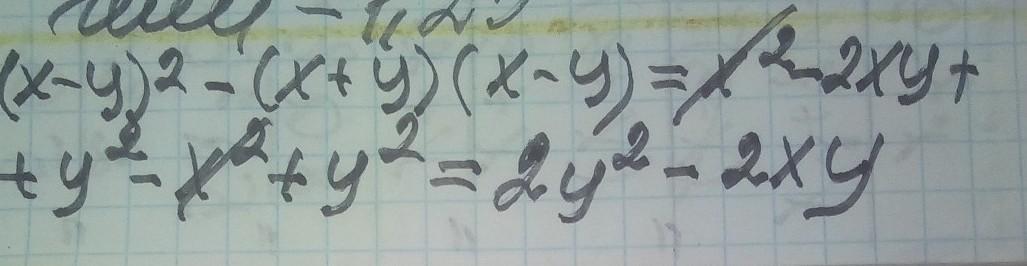 (x-y)2-(x+y)(x-y)=x²-2xy+
+y²-x²+y²=2y²-2xy